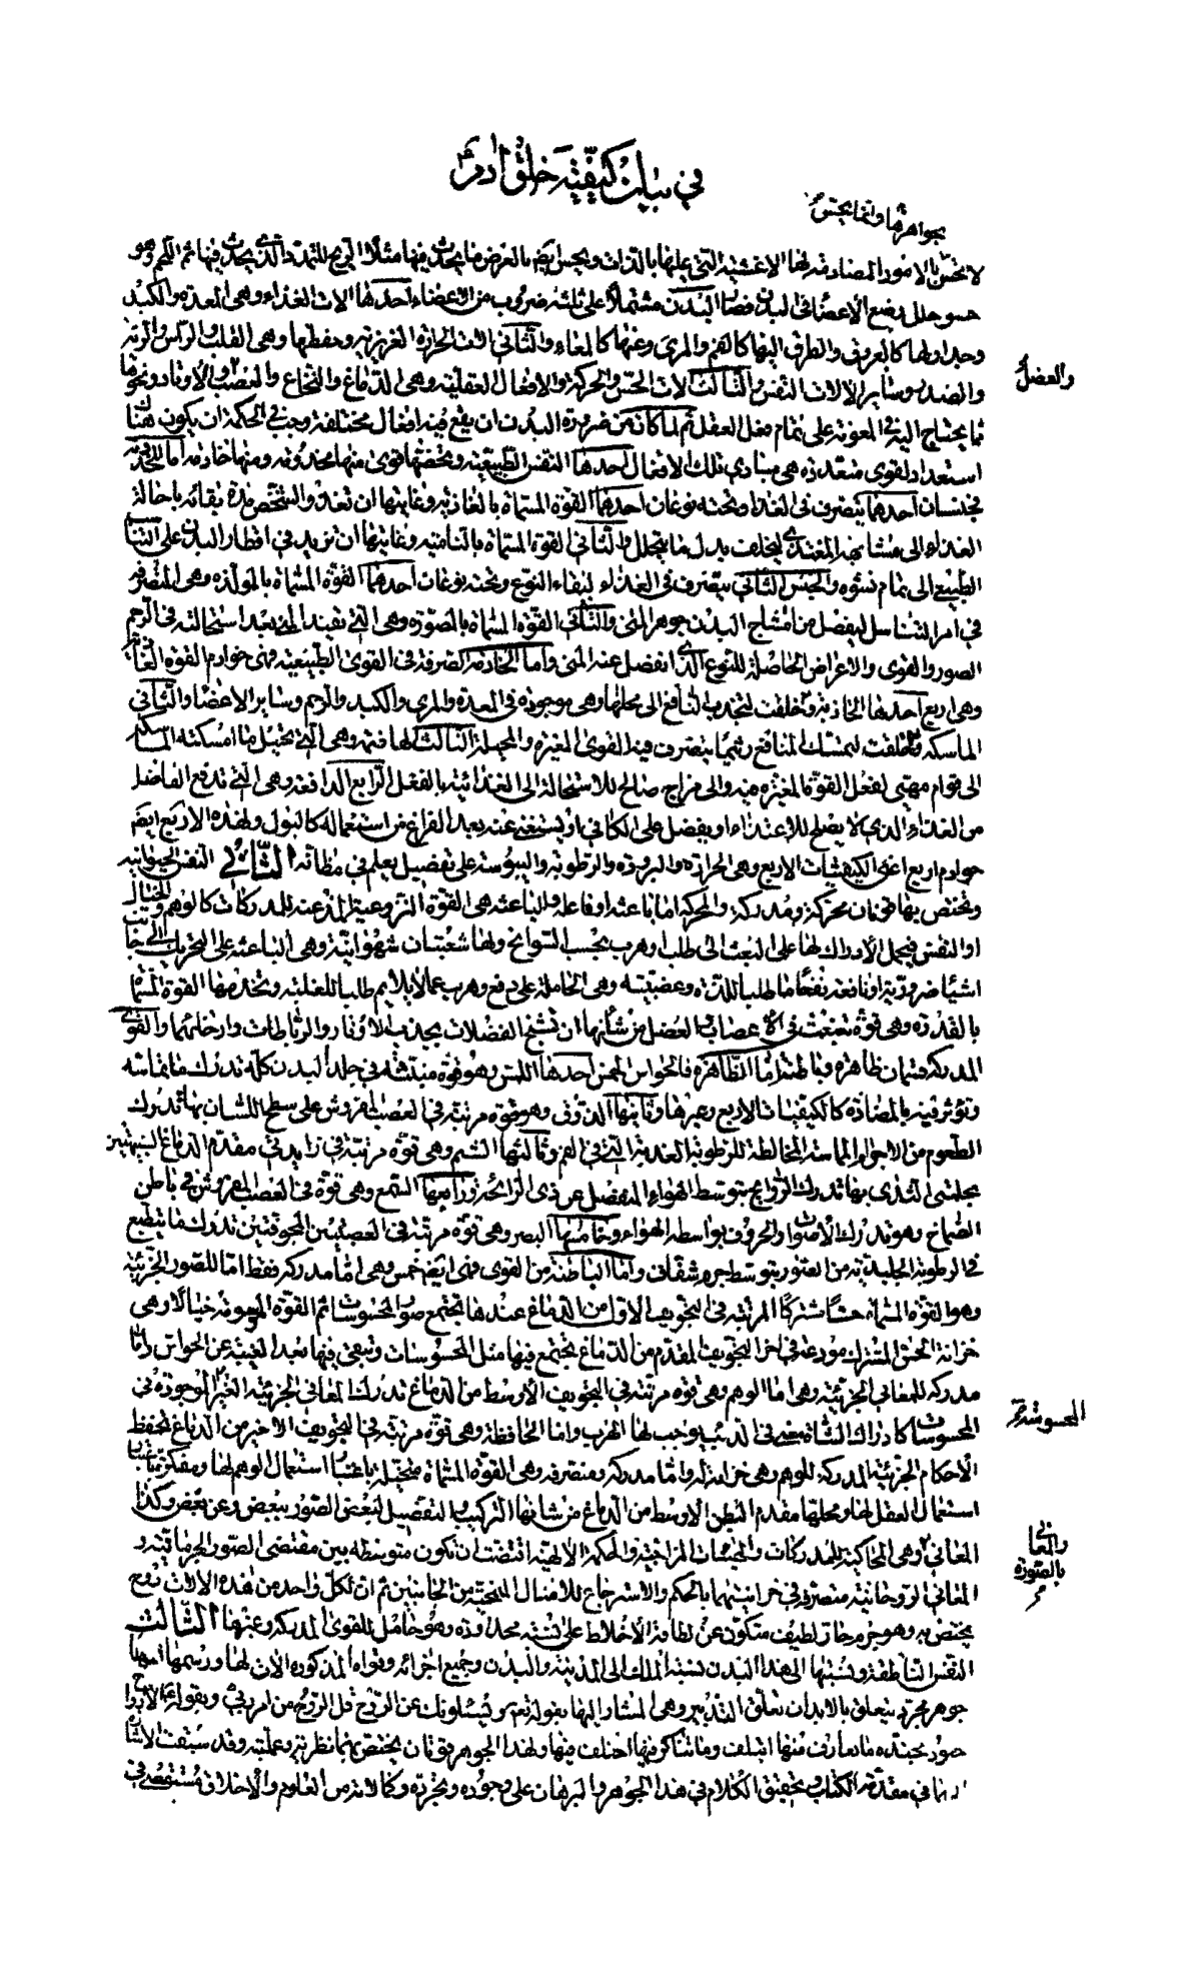 في بيان كيفيّة خلق آدم
بجواهرها وانما يحسّ
لا تحسّ بالامور المصادفة لها الاغشية التي عليها بالذات ويحس ايضم بالعرض ما يحدث فيها مثلا الريح للتمدد الذي يحدث فيها ثم انهم وهو
حسوحلل بضع الأعضا في البدن فصار البدن مشتملا على ثلثة ضروب من الاعضاء احدها الات الغذاء وهي المعدة والكبد
وجداولها كالعروق والطرق اليها كالفم والمرى وعنها كالمعاء والثاني الات الحرارة الغريزية وحفظها وهي القلب والرأس والرئة
والصدر وسائر الالات النفس والثالث الات الحس والحركة والافعال العقلية وهي الدماغ والنخاع والعصب والاوتاد ونحوها
والعضل
مما يحتاج اليه في المعونة على تمام فعل العقل ثم لما كان من ضرورة البدن ان يقع فيه افعال مختلفة وجب في الحكمة ان يكون هناك
استعداد لقوى متعددة هي مبادي تلك الافعال احدها النفس الطبيعية ويخصها قوى منها مخدومة ومنها خادمة اما المخدومة
فجنسان احدهما يتصرف في الغذاء وتحته نوعان احدهما القوة المسماة بالغاذية وغايتها ان تغذو الشخص مدة بقائه باحالة
الغذاء الى مشابهة المغتذي ليخلف بدل ما يتحلل والثاني القوة المسماة بالنامية وغايتها ان تزيد في اقطار البدن على التناسب
الطبيعي الى تمام نشوه والجنس الثاني يتصرف في الغذاء لبقاء النوع وتحته نوعان احدهما القوة المسماة بالمولدة وهي المتصرفة
في امر التناسل ليفصل من امشاج البدن جوهر المنى والثاني القوة المسماة بالمصورة وهي التي تفيد المنى بعد استحالته في الرحم
الصور والقوى والاعراض الحاصلة للنوع الذي انفصل عنه المنى واما الخادمة الصرفة في القوى الطبيعية فهي خوادم القوة الغاذية
وهي اربع احدها الجاذبة وخلقت لتجذب النافع الى محلها وهي موجودة في المعدة والمرى والكبد والرحم وسائر الاعضا والثاني
الماسكة وخلقت لتمسك المنافع ريثما يتصرف فيه القوى المغيرة والمحيلة الثالث الهاضمة وهي التي تحيل ما امسكته الماسكة
الى قوام مهيئ لفعل القوة المغيرة فيه والى مزاج صالح للاستحالة الى الغذائية بالفعل الرابع الدافعة وهي التي تدفع الفاضل
من الغذاء الذي لا يصلح للاغتذاء او يفضل على الكافي او يستغنى عنه بعد الفراغ من استعماله كالبول ولهذه الاربع ايضم
خوادم اربع اعنى الكيفيات الاربع وهي الحرارة والبرودة والرطوبة واليبوسة على تفصيل يعلم في مظانه الثاني النفس الحيوانية
وتختص بها قوتان محركة ومدركة والمحركة اما باعثة او فاعلة والباعثة هي القوة النزوعية المذعنة للمدركات كالوهم والخيال
او النفس فيحمل الادراك لها على البعث الى طلب او هرب بحسب السوانح ولها شعبتان شهوانية وهي الباعثة على التحريك الى جانب
اشياء ضرورية او نافعة نفعا ما طلبا للذة وغضبية وهي الحاملة على دفع وهرب عما لا يلايم طلبا للغلبة وتخدمها القوة المسماة
بالقدرة وهي قوة تنبعث في الاعصاب والعضل من شأنها ان تشنج العضلات بجذب الاوتار والرباطات وارخائهما والقوى
المدركة قسمان ظاهرة وباطنة اما الظاهرة فالحواس الخمس احدها اللمس وهو قوة منبثة في جلد البدن كله تدرك ما تماسه
وتؤثر فيه بالمضادة كالكيفيات الاربع وغيرها وثانيها الذوق وهو قوة مرتبة في العصب المفروش على سطح اللسان بها تدرك
الطعوم من الاجرام المماسة المخالطة للرطوبة العذبة التي في الفم وثالثها الشم وهي قوة مرتبة في زايدتي مقدم الدماغ الشبيهتين
بحلمتي الثدي بها تدرك الروايح بتوسط الهواء المنفصل عن ذي الرائحة ورابعها السمع وهي قوة في العصب المفروش في باطن
الصماخ وهو تدرك الاصوات والحروف بواسطة الهواء وخامسها البصر وهي قوة مرتبة في العصبتين المجوفتين تدرك ما ينطبع
في الرطوبة الجليدية من الصور بتوسط جرم شفاف واما الباطنة من القوى فهي ايضم خمس وهي اما مدركة فقط اما للصور الجزئية
وهو القوة المسماة حسّا مشتركًا المرتبة في التجويف الاول من الدماغ عندها تجتمع صور المحسوسات ثم القوة المسماة خيالا وهي
خزانة الحس المشترك مودعة في اخر التجويف المقدم من الدماغ تجتمع فيها مثل المحسوسات وتبقى فيها بعد الغيبة عن الحواس واما
مدركة للمعاني الجزئية وهي اما الوهم وهي قوة مرتبة في التجويف الاوسط من الدماغ تدرك المعاني الجزئية الغير الموجودة في
المحسوسات كادراك الشاة معنى في الذئب يوجب لها الهرب واما الحافظة وهي قوة مرتبة في التجويف الاخير من الدماغ تحفظ
المحسوسة
الاحكام الجزئية المدركة للوهم وهي خزانة له واما مدركة ومتصرفة وهي القوة المسماة متخيلة باعتبار استعمال الوهم لها ومفكرة باعتبار
استعمال العقل لها ومحلها مقدم البطن الاوسط من الدماغ من شأنها التركيب والتفصيل لبعض الصور ببعض وعن بعض وكذا
المعاني وهي الحاكية للمدركات والهيئات المزاجية والحكمة الالهية اقتضت ان تكون متوسطة بين مقتضى الصور الجرمانية و
والمعاني
بالصورة
المعاني الروحانية متصرفة في خزانتيهما بالحكم والاسترجاع للامثال المنمحية من الجانبين ثم ان لكل واحد من هذه الالات روح
يختص به وهو جرم حار لطيف متكون عن لطافة الاخلاط على نسبة محدودة وهو حامل للقوى المدركة وغيرها الثالث
النفس الناطقة ونسبتها الى هذا البدن نسبة الملك الى المدينة والبدن وجميع اجزائه وقواه المذكورة الات لها ورسمها انها
جوهر مجرد يتعلق بالابدان تعلق التدبير وهي المشار اليها بقوله تعم ويسئلونك عن الروح قل الروح من امر ربي وبقوله الارواح
جنود مجندة ما تعارف منها ايتلف وما تناكر فيها اختلف فيها ولهذا الجوهر قوتان يختص بهما نظرية وعملية وقد سبقت الاشارة
اليهما في مقدمة الكتاب وتحقيق الكلام في هذا الجوهر والبرهان على وجوده وتجرده وكمالاته من العلوم والاخلاق مستقصى في